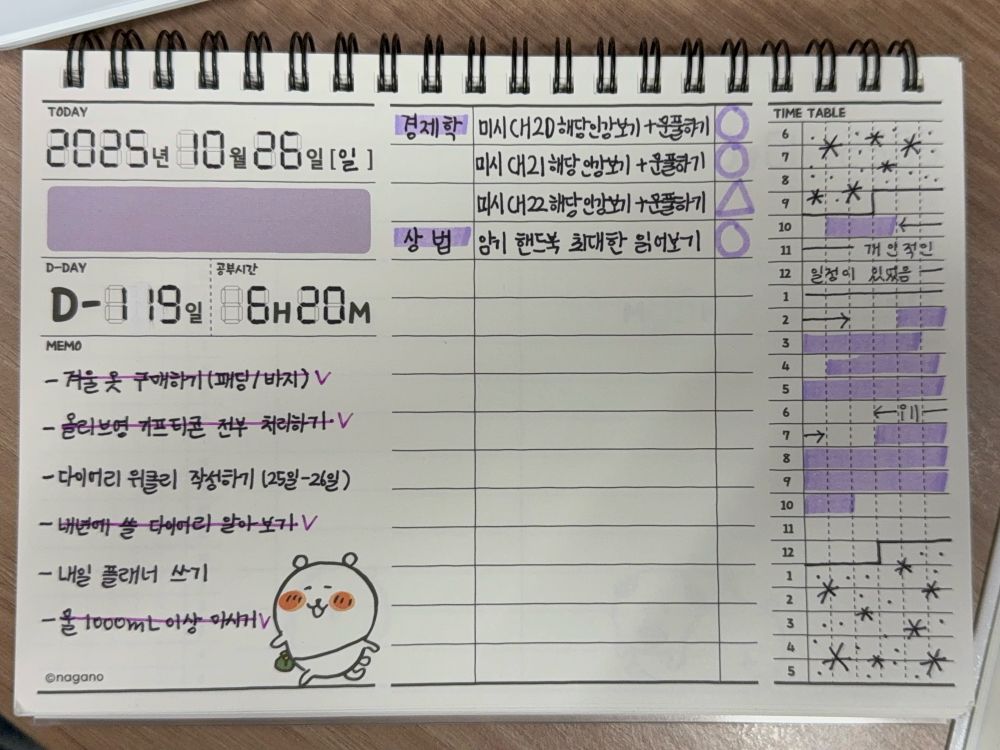 TODAY
2025년 10월 26일 [일]
D-DAY
공부시간
D-119일
6H20M
MEMO
- 겨울 옷 구매하기 (패딩/바지) V
- 올리브영 기프티콘 전부 처리하기 V
- 다이어리 위클리 작성하기 (25일-26일)
- 내년에 쓸 다이어리 알아보기 V
- 내일 플래너 쓰기
- 물 1000mL 이상 마시기 V
©nagano
경제학 미시 CH20 해당인강보기 + 문풀하기 ○
미시 CH21 해당인강보기 + 문풀하기 ○
미시 CH22 해당인강보기 + 문풀하기 △
상법 암기 핸드북 최대한 읽어보기 ○
TIME TABLE
6
7
8
9
10 ←
11 개인적인
12 일정이 있었음
1
2 →
3
4
5
6 ←
7 →
8
9
10
11
12
1
2
3
4
5